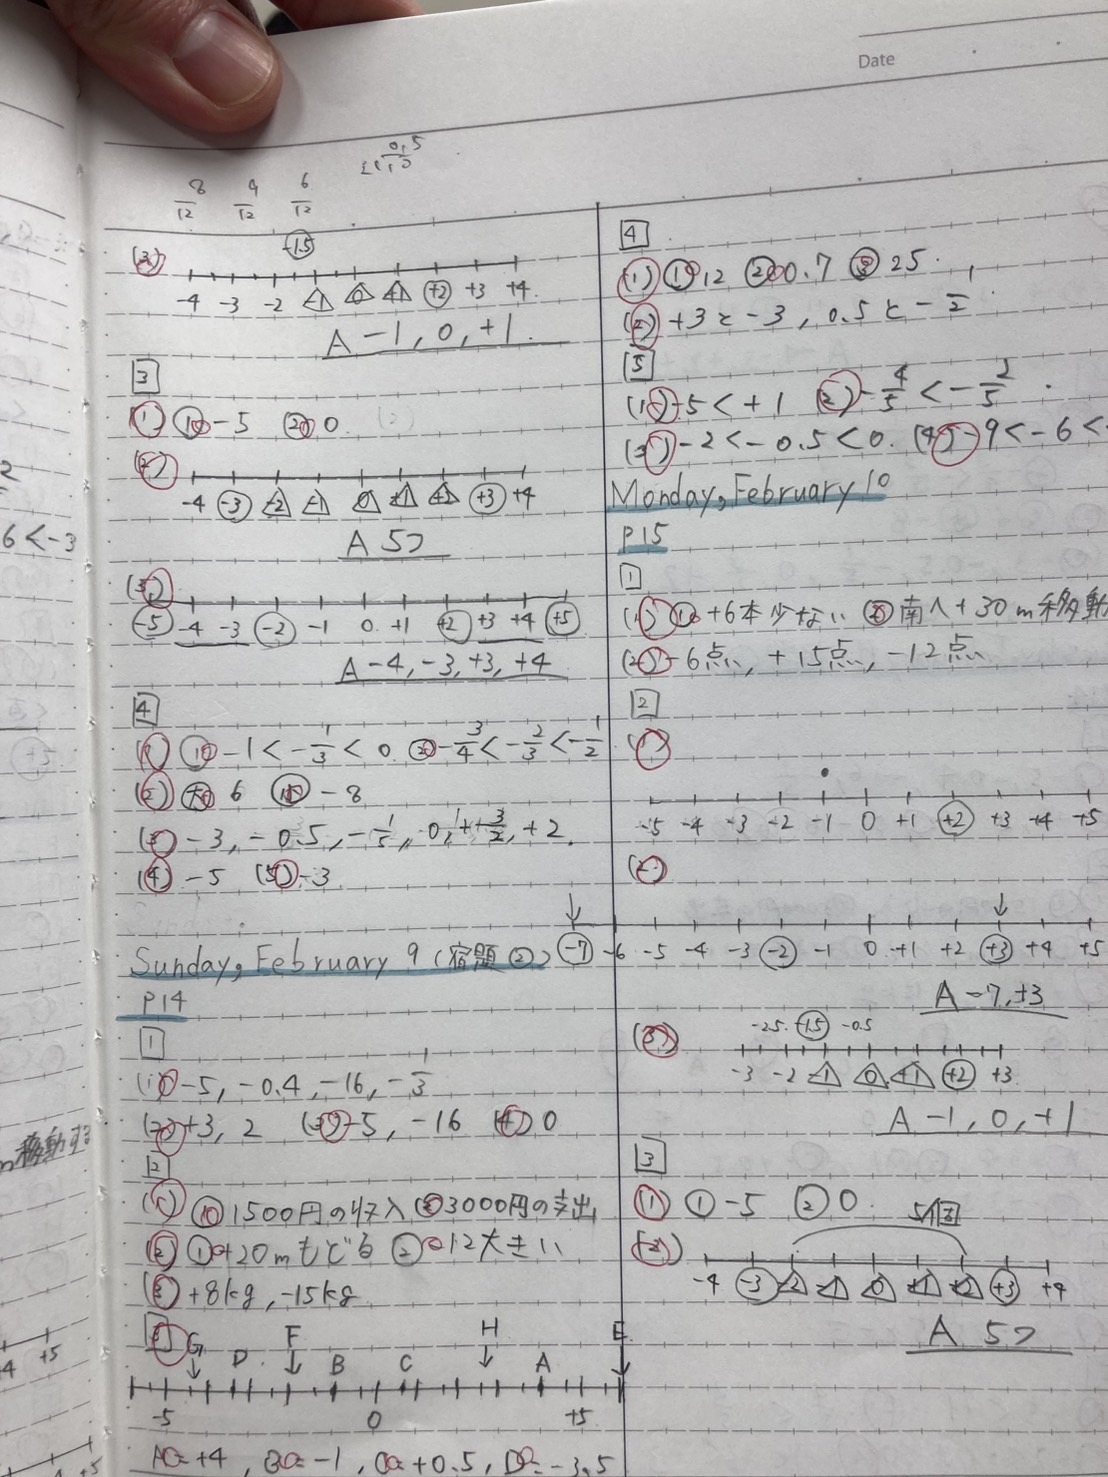 Date
8/12 9/12 6/12
0.5
(3) -1.5
-4 -3 -2 -1 0 +1 +2 +3 +4
A -1, 0, +1
3
(1) ① -5 ② 0
(2)
-4 -3 -2 -1 0 +1 +2 +3 +4
A 5つ
(3)
-5 -4 -3 -2 -1 0 +1 +2 +3 +4 +5
A -4, -3, +3, +4
4
(1) ① -1 < -1/3 < 0 ② -3/4 < -2/3 < -1/2
(2) 大 6 小 -8
(3) -3, -0.5, -1/5, 0, +3/2, +2.
(4) -5 (5) -3
Sunday, February 9 (宿題②)
P14
1
(1) -5, -0.4, -16, -1/3
(2) +3, 2 (3) -5, -16 (4) 0
2
(1) ① 1500円の収入 ② 3000円の支出
(2) ① +20mもどる ② -12大きい
(3) +8kg, -15kg
3 G D F B C H A E
-5 0 +5
A = +4, B = -1, C = +0.5, D = -3.5
4
(1) ① 12 ② 0.7 ③ 25
(2) +3と-3, 0.5と-1/2
5
(1) -5 < +1 (2) -4/5 < -2/5
(3) -2 < -0.5 < 0. (4) -9 < -6 <
Monday, February 10
P15
1
(1) ① +6本少ない ② 南へ+30m移動
(2) -6点, +15点, -12点
2
(1)
-5 -4 -3 -2 -1 0 +1 +2 +3 +4 +5
(2)
-7 -6 -5 -4 -3 -2 -1 0 +1 +2 +3 +4 +5
A -7, +3
(3) -2.5 -1.5 -0.5
-3 -2 -1 0 +1 +2 +3
A -1, 0, +1
3
(1) ① -5 ② 0
(2) 5個
-4 -3 -2 -1 0 +1 +2 +3 +4
A 5つ
2
6 < -3
m移動する
+4 +5
+5